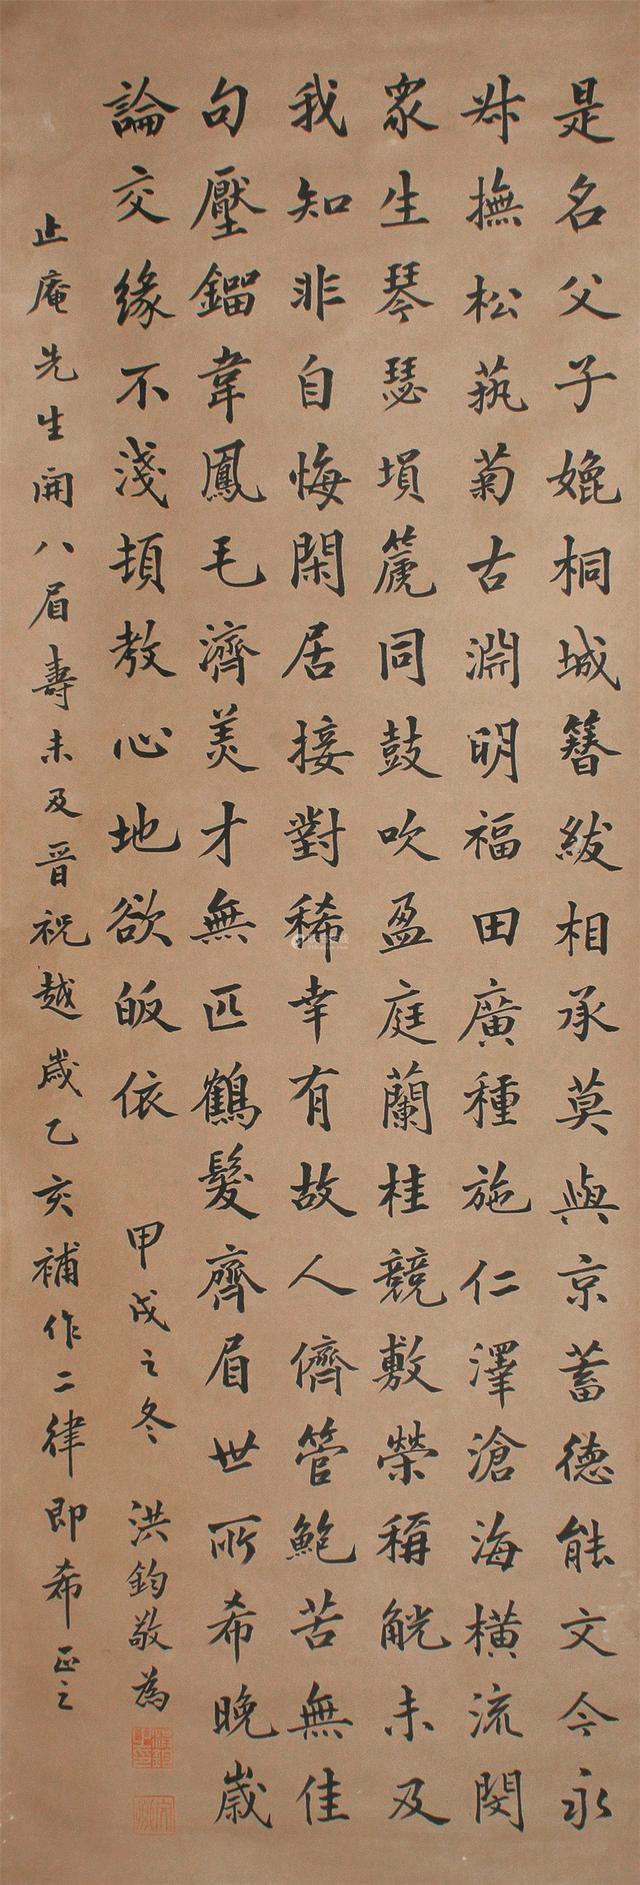 是名父子媲桐城簪紱相承莫與京蓄德能文今永
叔撫松蓺菊古淵明福田廣種施仁澤滄海橫流閔
衆生琴瑟塤篪同鼓吹盈庭蘭桂競敷榮稱觥未及
我知非自悔閑居接對稀幸有故人儕管鮑苦無佳
句壓鎦韋鳳毛濟美才無匹鶴髮齊眉世所希晚歲
論交緣不淺頓教心地欲皈依 甲戌之冬 洪鈞敬為
止庵先生開八眉壽未及晉祝越歲乙亥補作二律即希正之